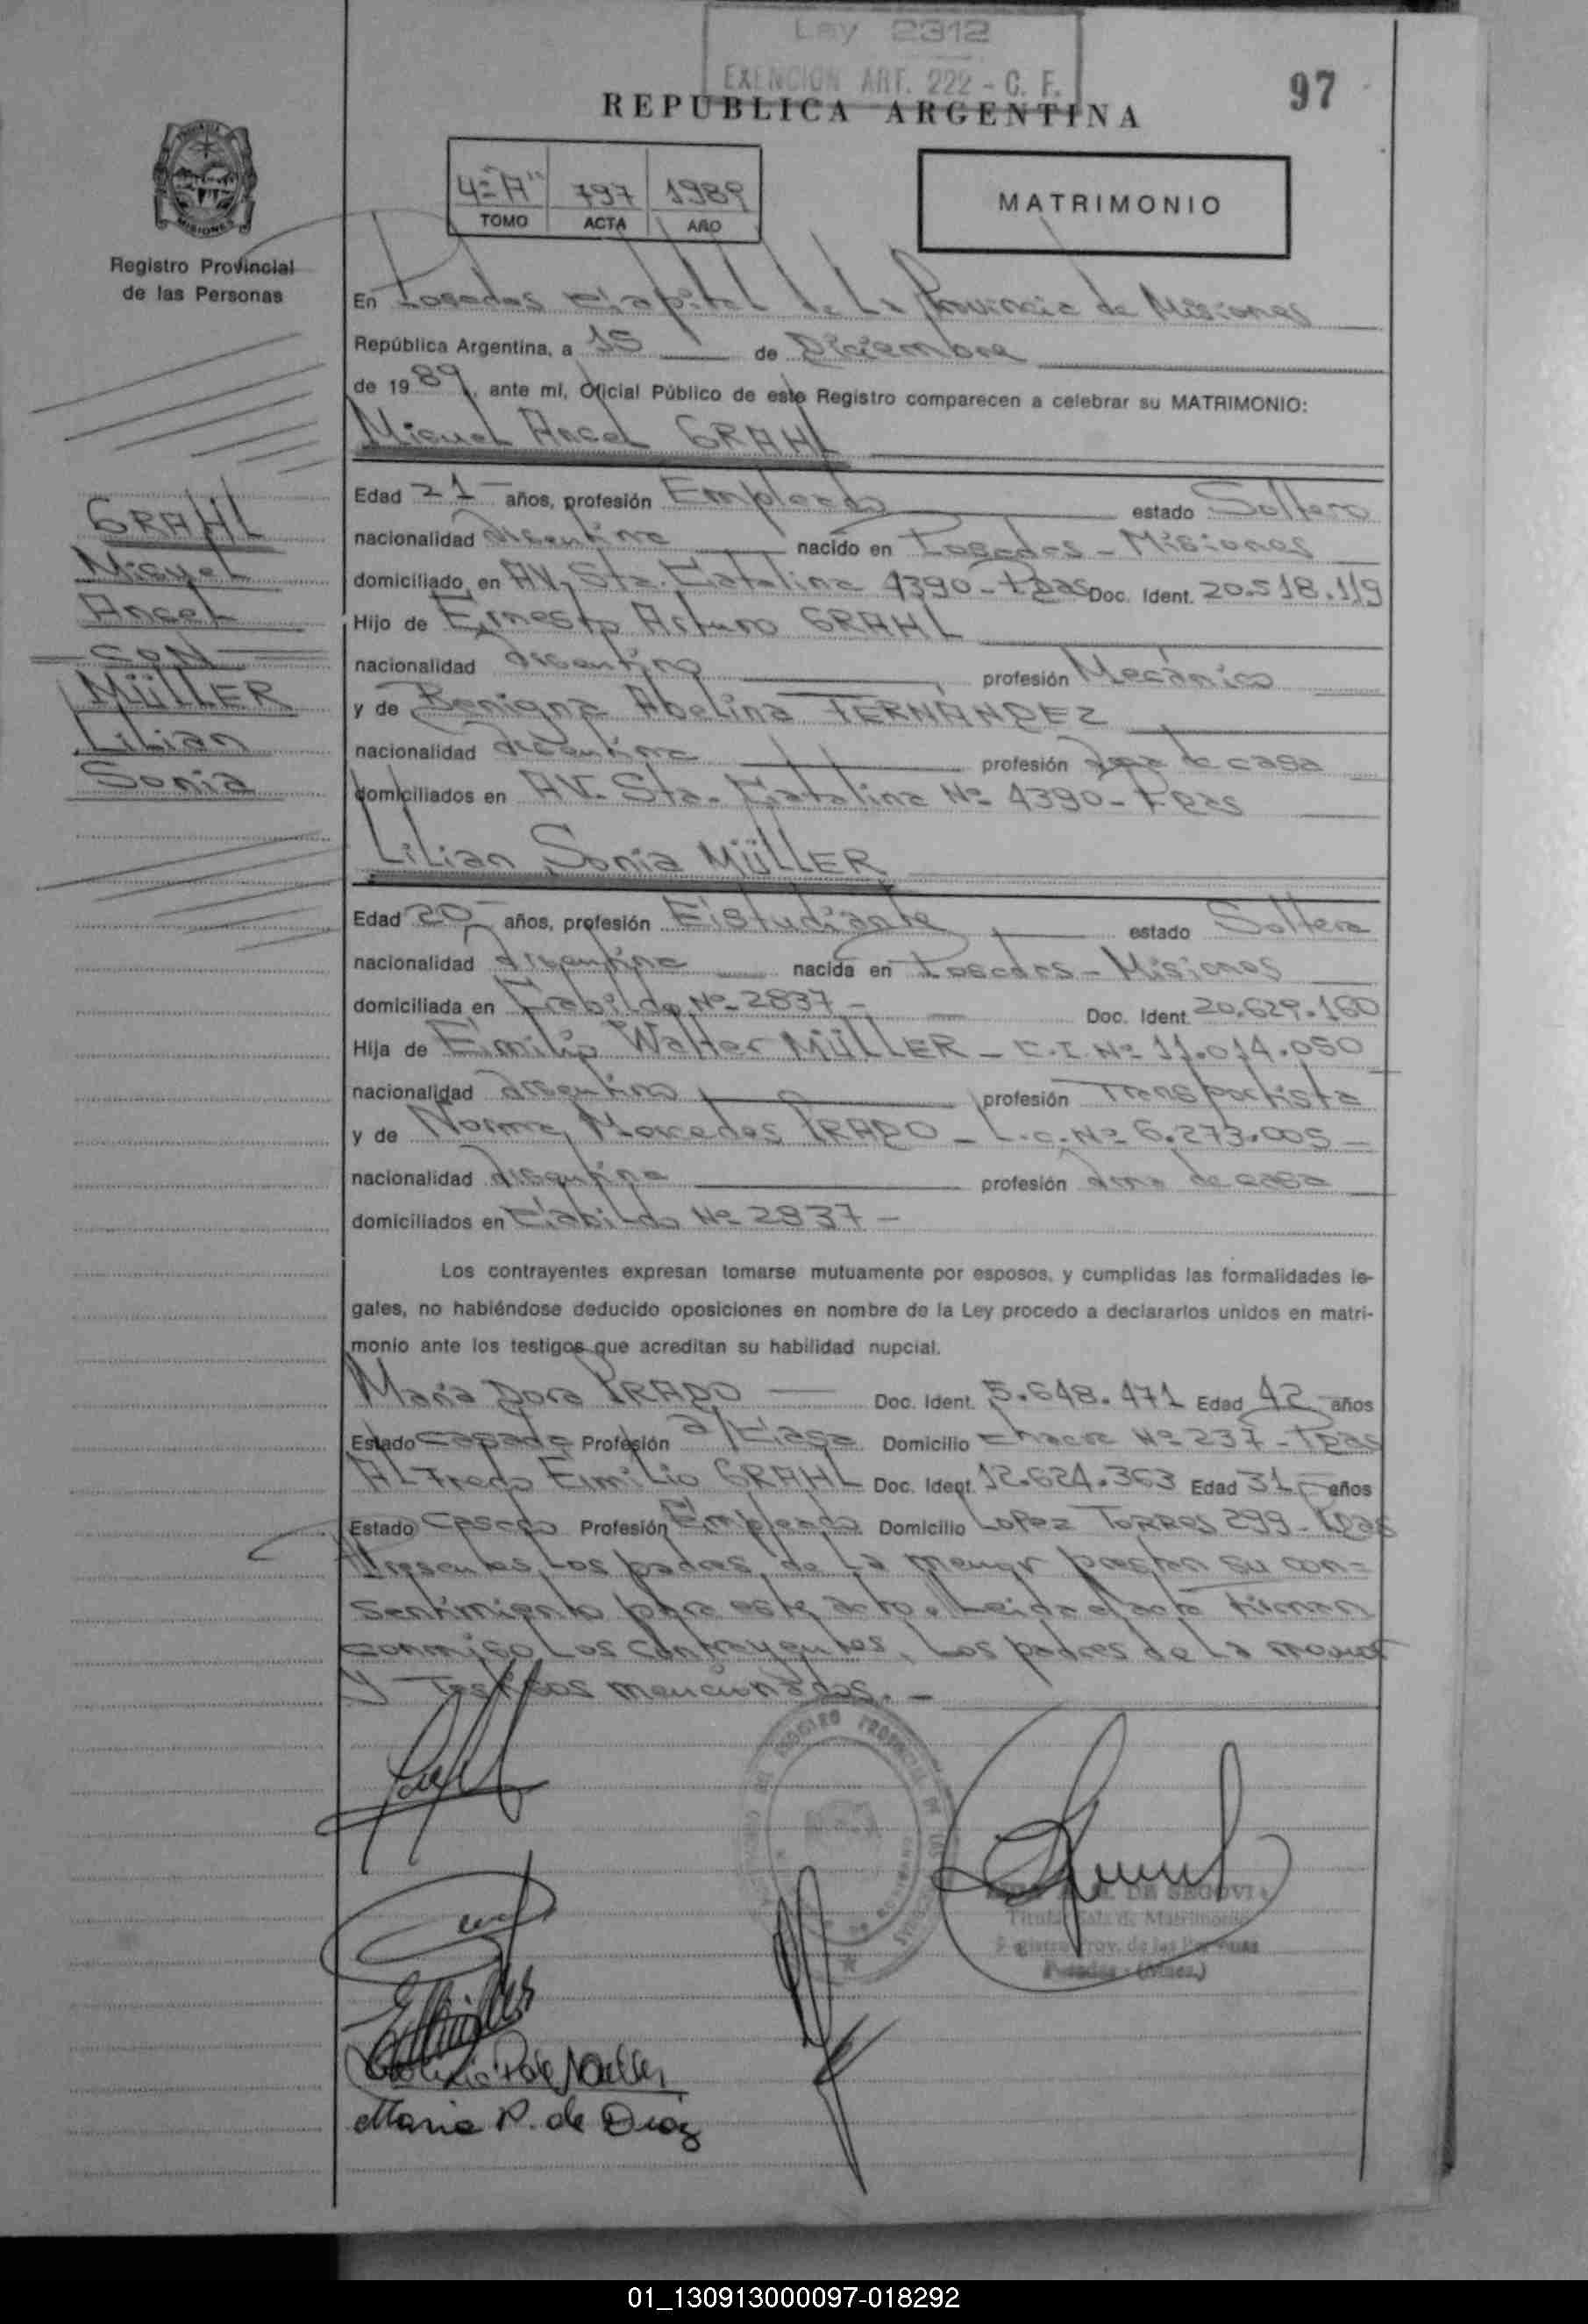 Ley 2312
EXENCION ART. 222 - C. F.
97
REPUBLICA ARGENTINA
4º "A" 797 1989
TOMO ACTA AÑO
MATRIMONIO
MISIONES
Registro Provincial
de las Personas
En Posadas Capital de La Provincia de Misiones
República Argentina, a 15 de Diciembre
de 1989, ante mí, Oficial Público de este Registro comparecen a celebrar su MATRIMONIO:
Miguel Angel GRAHL
Edad 21 años, profesión Empleado estado Soltero
nacionalidad argentina nacido en Posadas - Misiones
domiciliado en AV. Sta. Catalina 4390 - Pdas Doc. Ident. 20.518.119
Hijo de Ernesto Arturo GRAHL
nacionalidad argentino profesión Mecánico
y de Benigna Abelina FERNÁNDEZ
nacionalidad argentina profesión ama de casa
domiciliados en AV. Sta. Catalina Nº 4390 - Pdas
Lilian Sonia MÜLLER
Edad 20 años, profesión Estudiante estado Soltera
nacionalidad argentina nacida en Posadas - Misiones
domiciliada en Cabildo Nº 2837 - Doc. Ident. 20.629.160
Hija de Emilio Walter MÜLLER - C.I. Nº 11.014.050
nacionalidad argentino profesión Transportista
y de Norma Mercedes PRADO - L.C. Nº 6.273.005 -
nacionalidad argentina profesión ama de casa
domiciliados en Cabildo Nº 2837 -
GRAHL
Miguel
Angel
CON
MÜLLER
Lilian
Sonia
Los contrayentes expresan tomarse mutuamente por esposos, y cumplidas las formalidades le-
gales, no habiéndose deducido oposiciones en nombre de la Ley procedo a declararlos unidos en matri-
monio ante los testigos que acreditan su habilidad nupcial.
María Dora PRADO Doc. Ident. 5.648.471 Edad 42 años
Estado casada Profesión a/Casa Domicilio chacra Nº 237 - Pdas
Alfredo Emilio GRAHL Doc. Ident. 12.624.363 Edad 31 años
Estado Casado Profesión Empleado Domicilio Lopez Torres 299 - Pdas
Presentes los padres de la menor prestan su con=
sentimiento para este acto. Leída el acta firman
conmigo los contrayentes, los padres de la menor
y testigos mencionados. -
REGISTRO PROVINCIAL DE LAS
DE SEGOVIA
Titular Sala de Matrimonio
Registro Prov. de las Personas
Posadas - (Mnes.)
Maria P. de Diaz
01_130913000097-018292